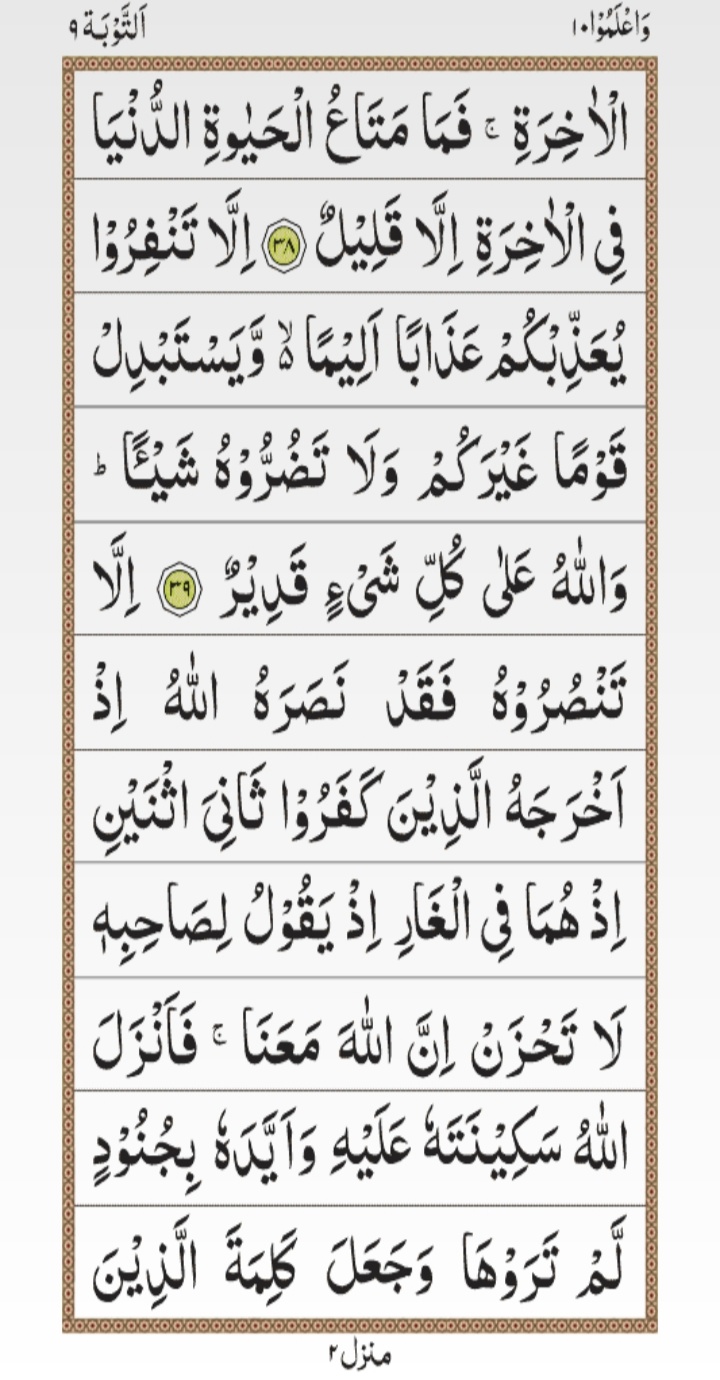 وَاعْلَمُوْا۱۰ اَلتَّوْبَة۹
الْاٰخِرَةِ ۚ فَمَا مَتَاعُ الْحَيٰوةِ الدُّنْيَا
فِى الْاٰخِرَةِ اِلَّا قَلِيْلٌ ۳۸ اِلَّا تَنْفِرُوْا
يُعَذِّبْكُمْ عَذَابًا اَلِيْمًا ۙ۵ وَّيَسْتَبْدِلْ
قَوْمًا غَيْرَكُمْ وَلَا تَضُرُّوْهُ شَيْـًٔا ؕ
وَاللّٰهُ عَلٰى كُلِّ شَىْءٍ قَدِيْرٌ ۳۹ اِلَّا
تَنْصُرُوْهُ فَقَدْ نَصَرَهُ اللّٰهُ اِذْ
اَخْرَجَهُ الَّذِيْنَ كَفَرُوْا ثَانِىَ اثْنَيْنِ
اِذْ هُمَا فِى الْغَارِ اِذْ يَقُوْلُ لِصَاحِبِهٖ
لَا تَحْزَنْ اِنَّ اللّٰهَ مَعَنَا ۚ فَاَنْزَلَ
اللّٰهُ سَكِيْنَتَهٗ عَلَيْهِ وَاَيَّدَهٗ بِجُنُوْدٍ
لَّمْ تَرَوْهَا وَجَعَلَ كَلِمَةَ الَّذِيْنَ
منزل۲